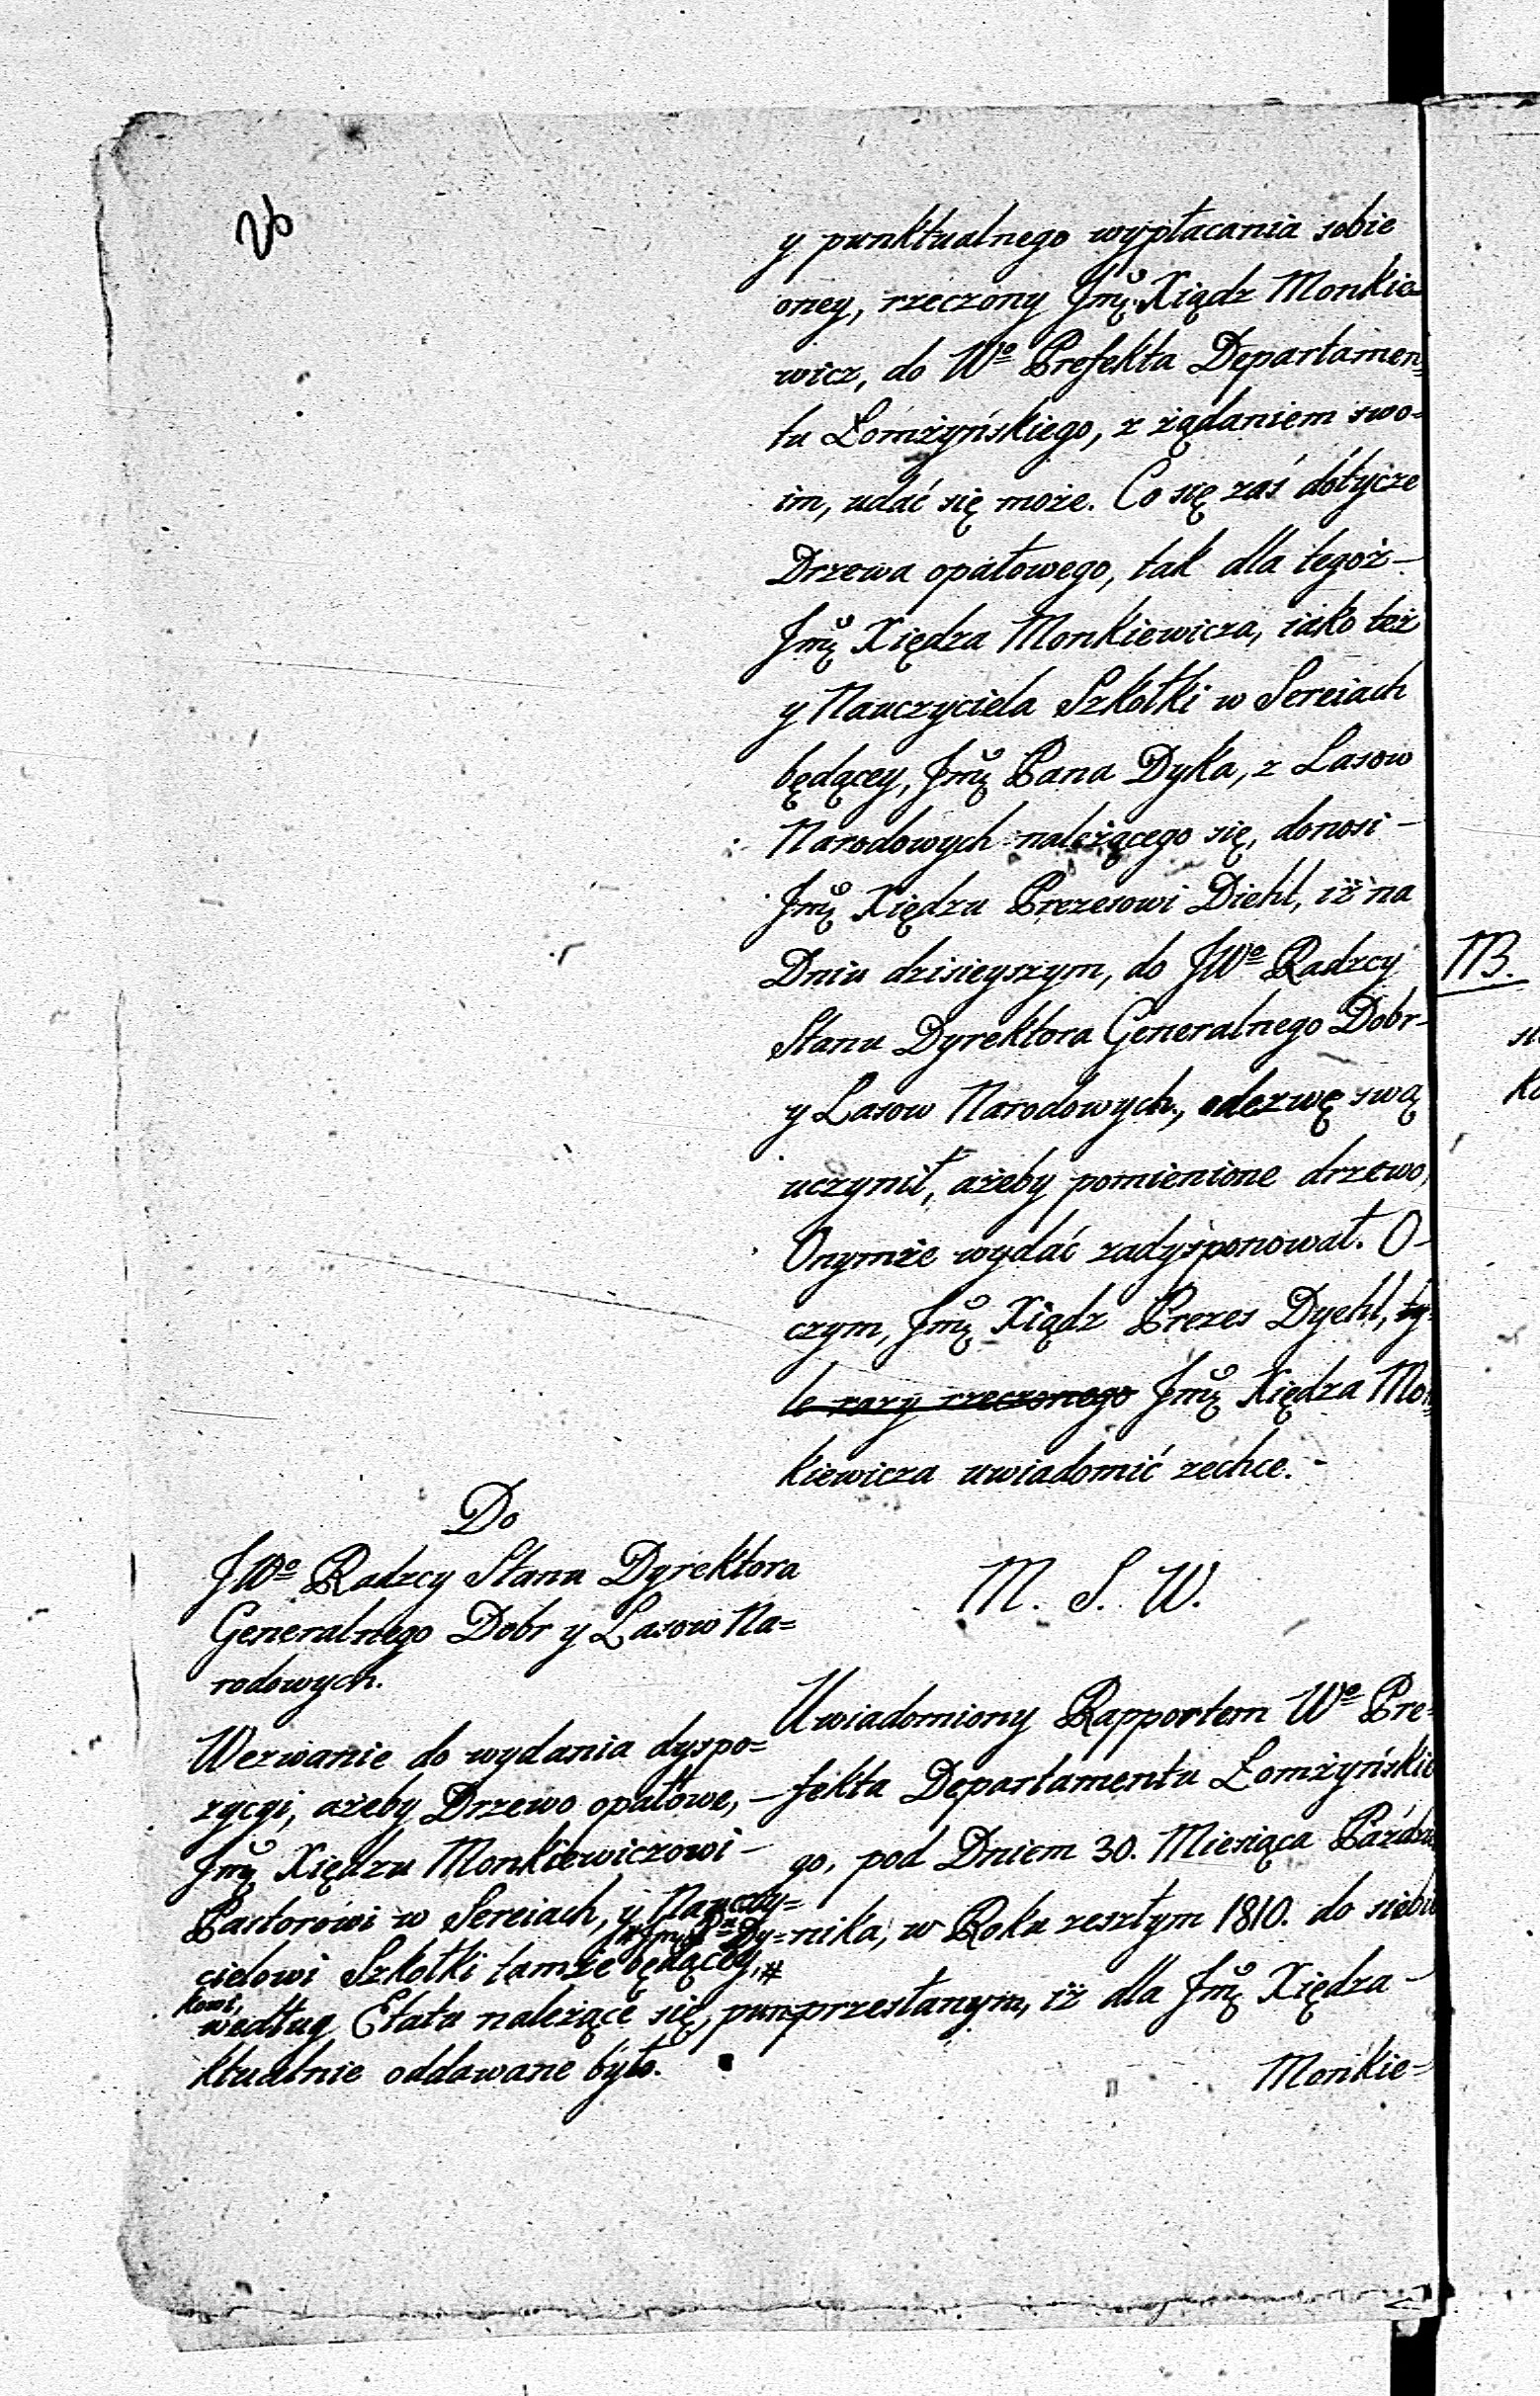 26
y punktualnego wypłacania sobie
oney, rzeczony Jmę Xiądz Monkie
wicz, do Wº Prefekta Departamen=
tu Łomżyńskiego, z żądaniem swo=
im, udać się może. Co się zaś dotycze
Drzewa opałowego, tak dla tegoż -
Jmę Xiędza Monkiewicza, iako też
y Nauczyciela Szkołki w Sereiach
będącey, Jmę Pana Dyka, z Lasow
Narodowych należącego się, donosi -
Jmę Xiędzu Prezesowi Diehl, iż na
Dniu dzisieyszym, do JWº Radzcy
Stanu Dyrektora Generalnego Dobr -
y Lasow Narodowych, odezwę swą
uczynił, ażeby pomienione drzewo,
Onymże wydać zadysponował. O -
czym, Jmę Xiądz Prezes Dyehl, ty=
le razy rzeczonego Jmę Xiędza Mon=
kiewicza uwiadomić zechce. -
Do
JWº Radzcy Stanu Dyrektora
Generalnego Dobr y Lasow Na=
rodowych.
Wezwanie do wydania dyspo=
zycyi, ażeby Drzewo opałowe, -
Jmę Xiędzu Monkiewiczowi -
Pastorowi w Sereiach, y Nauczy=
cielowi Szkołki tamże będącey, #
# Jmę Pº Dy=
kowi,
według Etatu należące się, pun=
ktualnie oddawane było.
M. S. W.
Uwiadomiony Rapportem Wº Pre=
fekta Departamentu Łomżyńskie
go, pod Dniem 30. Miesiąca Paździer
nika, w Roku zeszłym 1810. do siebie
przesłanym, iż dla Jmę Xiędza -
Monkie=
NB.